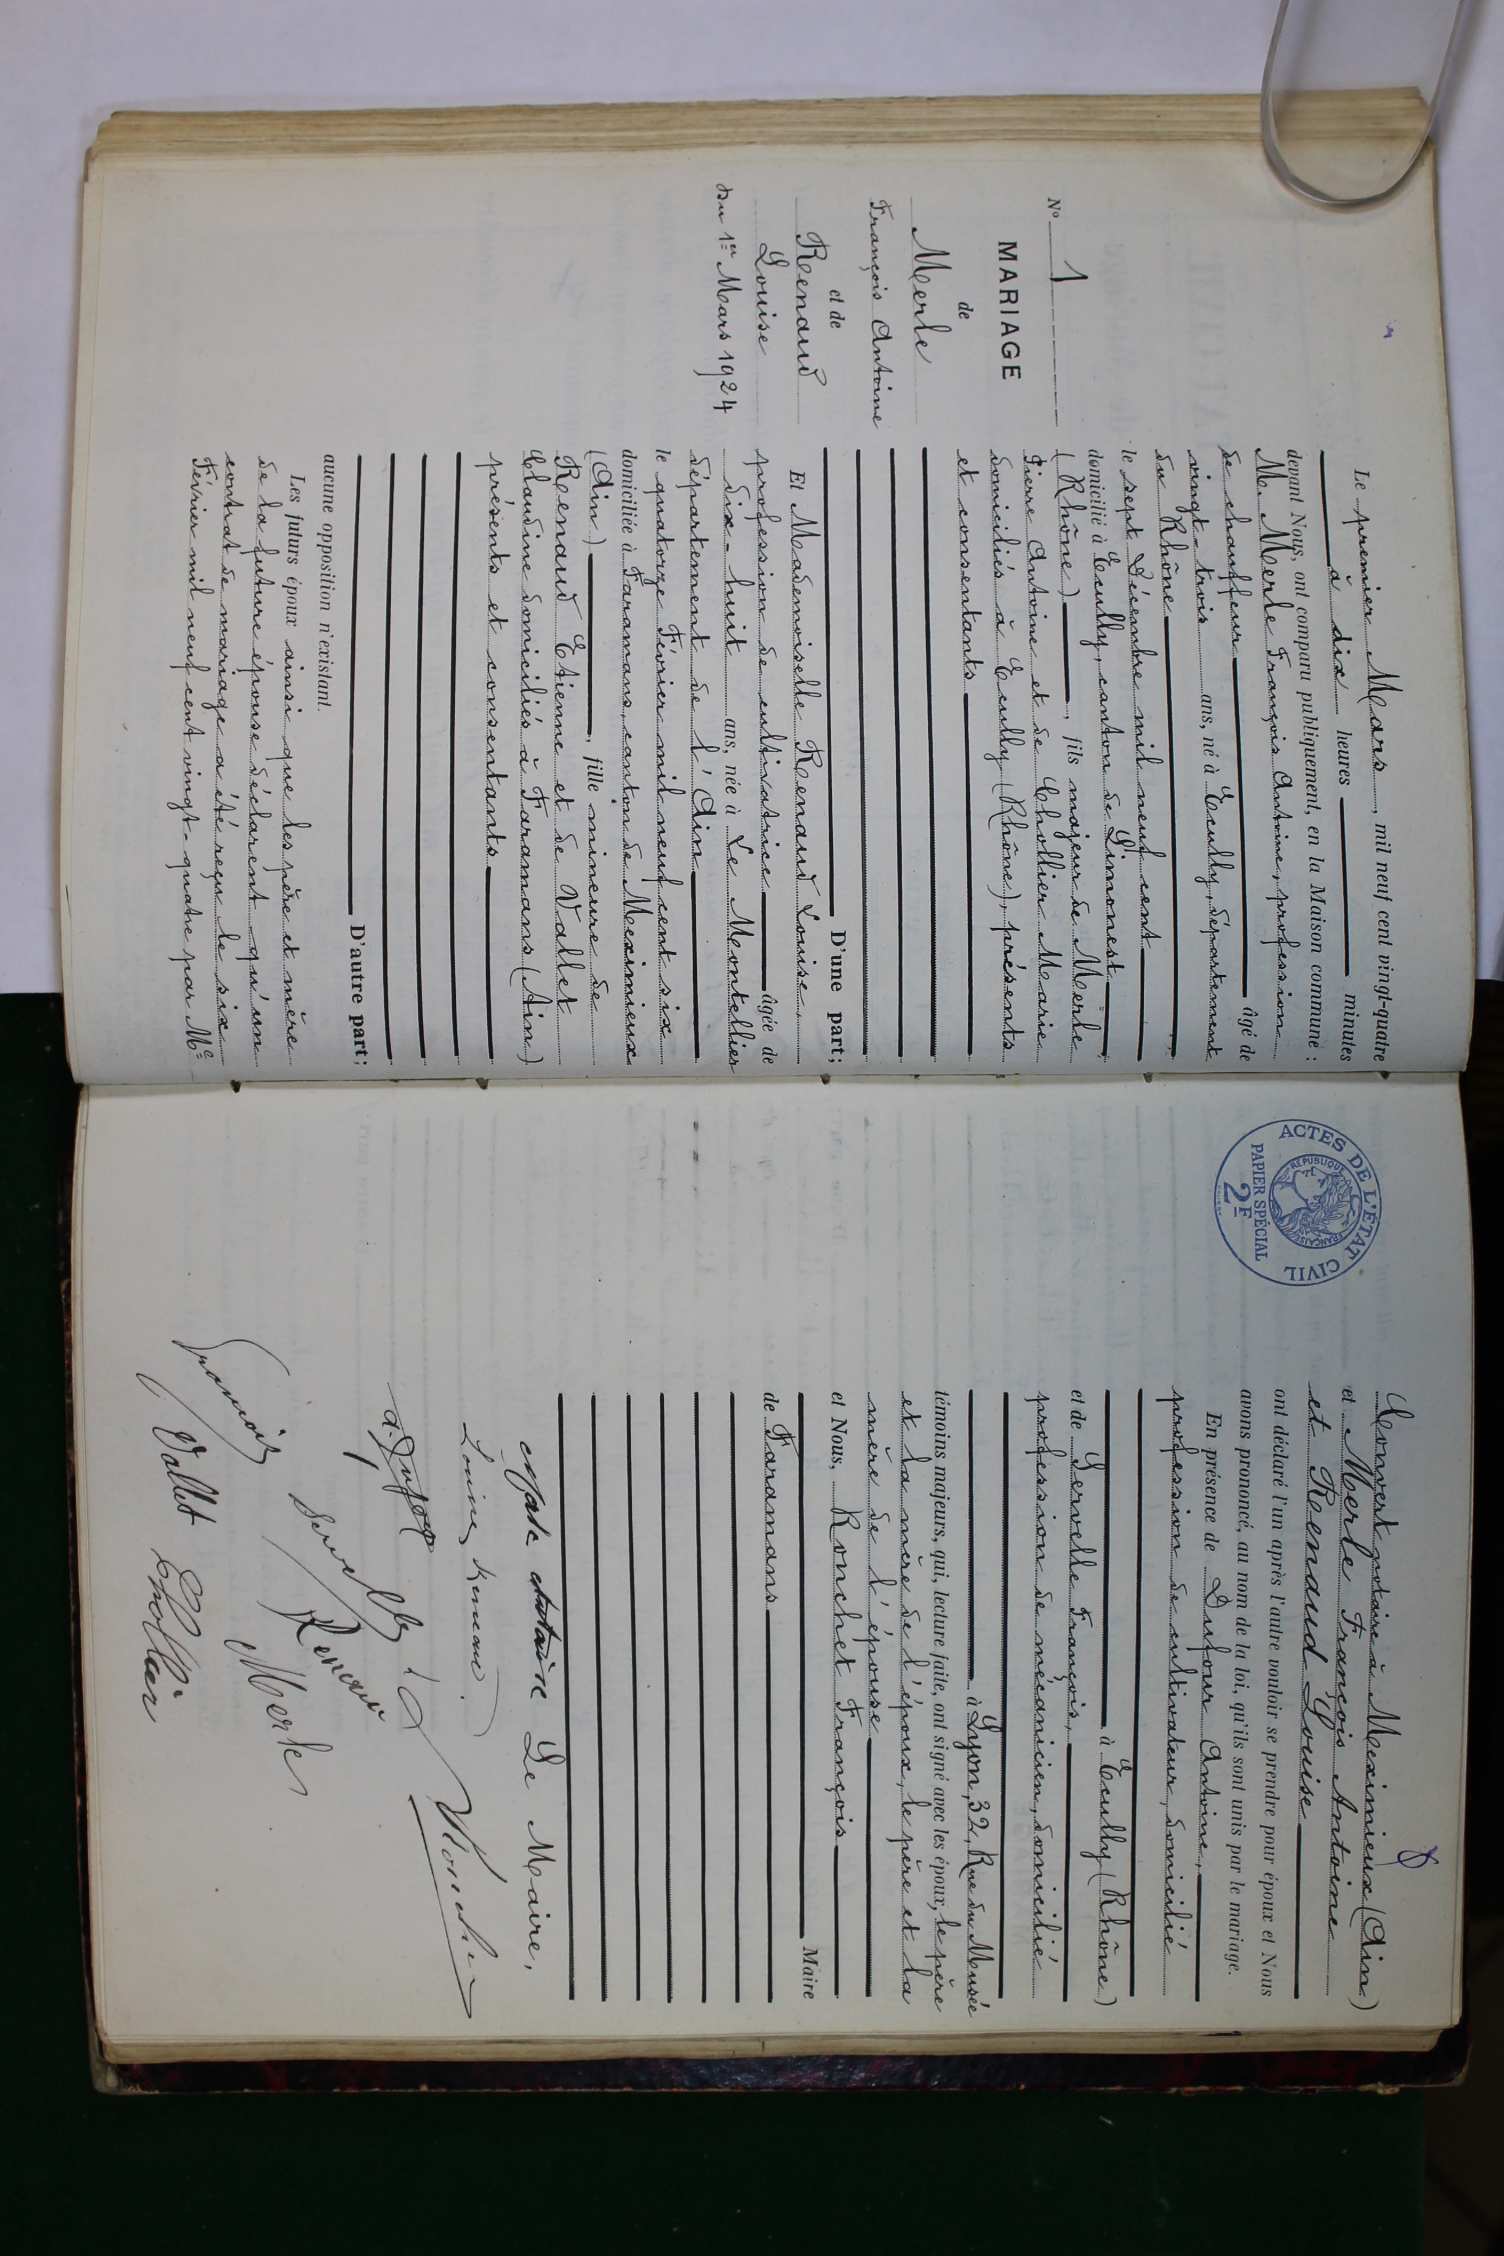 N° 1
MARIAGE
de
Merle
François Antoine
et de
Renaud
Louise
du 1er Mars 1924
Le premier Mars, mil neuf cent vingt-quatre
à dix heures minutes
devant Nous, ont comparu publiquement, en la Maison commune :
M. Merle François Antoine, profession
de chauffeur âgé de
vingt-trois ans, né à Ecully, département
du Rhône
le sept Décembre mil neuf cent
domicilié à Ecully, canton de Limonest
(Rhône), fils majeur de Merle
Pierre Antoine et de Chollier Marie
domiciliés à Ecully (Rhône), présents
et consentants
D'une part;
Et Mademoiselle Renaud Louise,
profession de cultivatrice âgée de
dix-huit ans, née à Le Montellier
département de l'Ain
le quatorze Février mil neuf cent six
domiciliée à Faramans, canton de Meximieux
(Ain), fille mineure de
Renaud Etienne et de Vallet
Claudine domiciliés à Faramans (Ain)
présents et consentants
D'autre part;
aucune opposition n'existant.
Les futurs époux ainsi que les père et mère
de la future épouse déclarent qu'un
contrat de mariage a été reçu le six
Février mil neuf cent vingt-quatre par Me
ACTES DE L'ÉTAT CIVIL
RÉPUBLIQUE FRANÇAISE
PAPIER SPÉCIAL
2F
Convert notaire à Meximieux (Ain)
et Merle François Antoine
et Renaud Louise
ont déclaré l'un après l'autre vouloir se prendre pour époux et Nous
avons prononcé, au nom de la loi, qu'ils sont unis par le mariage.
En présence de Dufour Antoine,
profession de cultivateur, domicilié
à Ecully (Rhône)
et de Servelle François,
profession de mécanicien, domicilié
à Lyon, 32, Rue du Musée
témoins majeurs, qui, lecture faite, ont signé avec les époux, le père
et la mère de l'époux, le père et la
mère de l'épouse
et Nous, Ronchet François
Maire
de Faramans
Le Maire,
Louise Renaud
Servelle
Renaud
Merle
Vallet Chollier